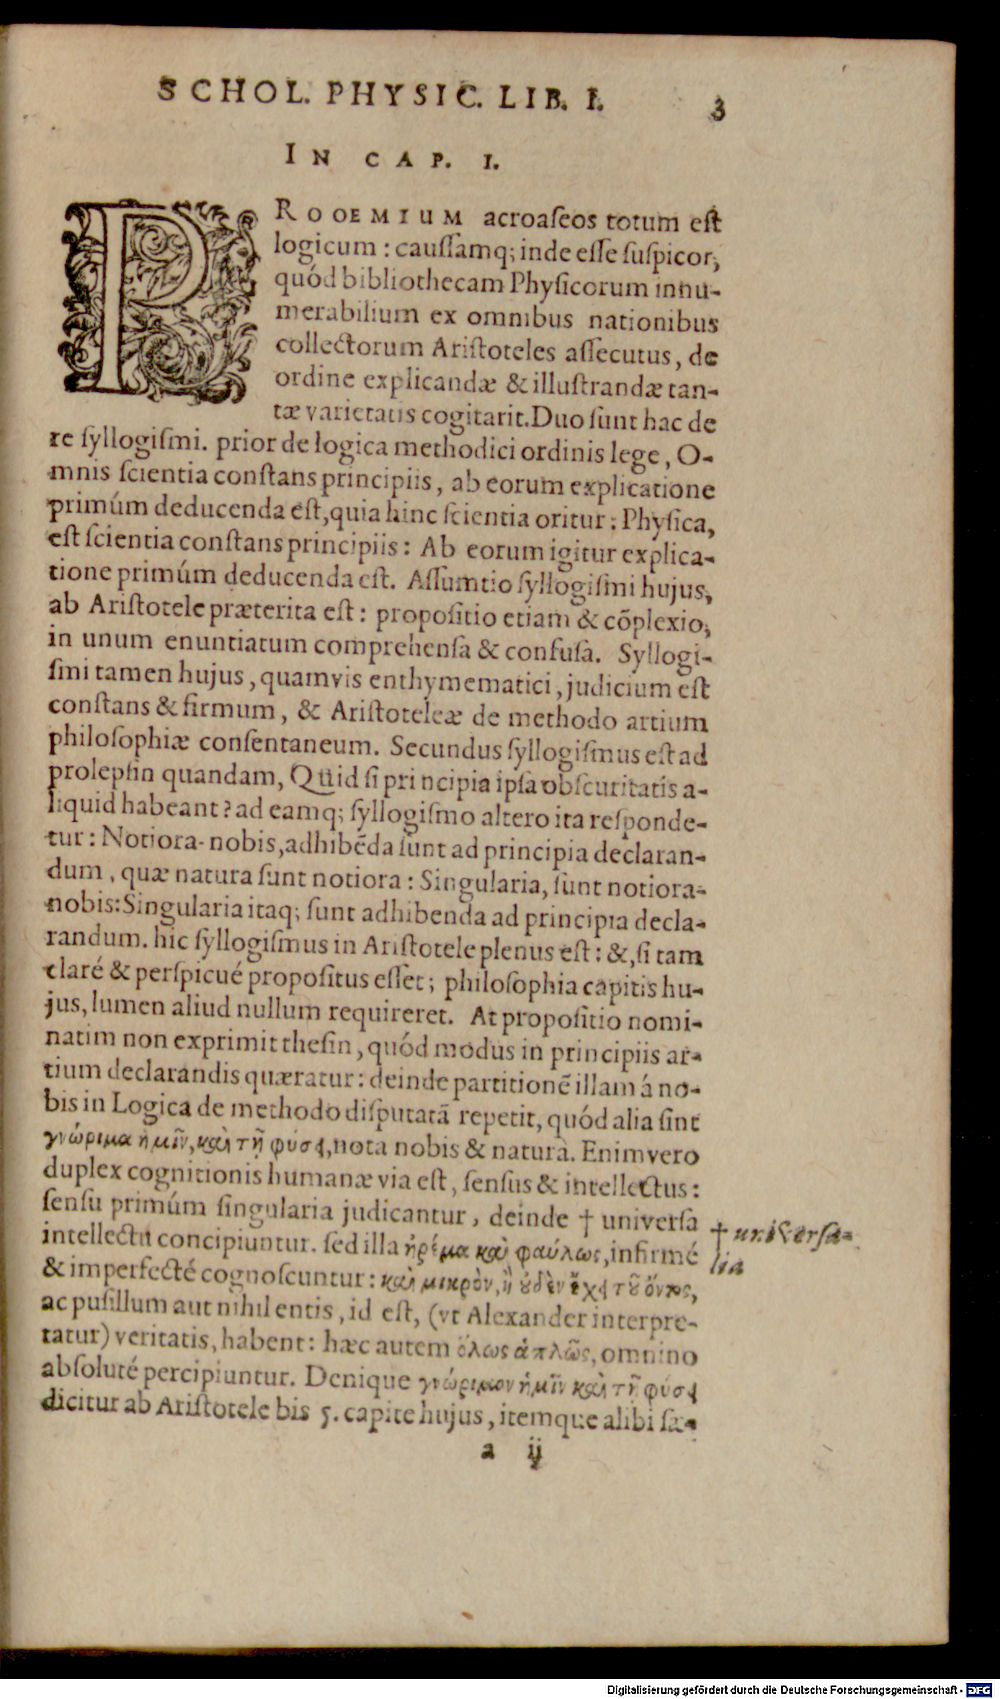 SCHOL. PHYSIC. LIB. I. 3
IN CAP. I.
PROOEMIUM acroaſeos totum eſt
logicum: cauſſamq; inde eſſe ſuſpicor,
quód bibliothecam Phyſicorum innu-
merabilium ex omnibus nationibus
collectorum Ariſtoteles aſſecutus, de
ordine explicandæ & illuſtrandæ tan-
tæ varietatis cogitarit. Duo ſunt hac de
re ſyllogiſmi. prior de logica methodici ordinis lege, O-
mnis ſcientia conſtans principiis, ab eorum explicatione
primúm deducenda eſt, quia hinc ſcientia oritur: Phyſica,
eſt ſcientia conſtans principiis: Ab eorum igitur explica-
tione primúm deducenda eſt. Aſſumtio ſyllogiſmi hujus,
ab Ariſtotele præterita eſt: propoſitio etiam & cõplexio,
in unum enuntiatum comprehenſa & confuſa. Syllogi-
ſmi tamen hujus, quamvis enthymematici, judicium eſt
conſtans & firmum, & Ariſtoteleæ de methodo artium
philoſophiæ conſentaneum. Secundus ſyllogiſmus eſt ad
prolepſin quandam, Quid ſi principia ipſa obſcuritatis a-
liquid habeant? ad eamq; ſyllogiſmo altero ita reſponde-
tur: Notiora nobis, adhibẽda ſunt ad principia declaran-
dum, quæ natura ſunt notiora: Singularia, ſunt notiora
nobis: Singularia itaq; ſunt adhibenda ad principia decla-
randum. hic ſyllogiſmus in Ariſtotele plenus eſt: &, ſi tam
claré & perſpicué propoſitus eſſet; philoſophia capitis hu-
jus, lumen aliud nullum requireret. At propoſitio nomi-
natim non exprimit theſin, quód modus in principiis ar-
tium declarandis quæratur: deinde partitionẽ illam á no-
bis in Logica de methodo diſputatã repetit, quód alia ſint
γνώριμα ἡμῖν, καὶ τῇ φύσει, nota nobis & naturâ. Enimvero
duplex cognitionis humanæ via eſt, ſenſus & intellectus:
ſenſu primúm ſingularia judicantur, deinde † univerſa
intellectu concipiuntur. ſed illa ἠρέμα καὶ φαύλως, infirmé
& imperfecté cognoſcuntur: καὶ μικρὸν, ἢ οὐδὲν ἔχει τοῦ ὄντος,
ac puſillum aut nihil entis, id eſt, (vt Alexander interpre-
tatur) veritatis, habent: hæc autem ὅλως ἁπλῶς, omnino
abſoluté percipiuntur. Denique γνώριμον ἡμῖν καὶ τῇ φύσει
dicitur ab Ariſtotele bis 5. capite hujus, itemque alibi ſæ-
a ij
† univerſa-
lia
Digitalisierung gefördert durch die Deutsche Forschungsgemeinschaft - DFG